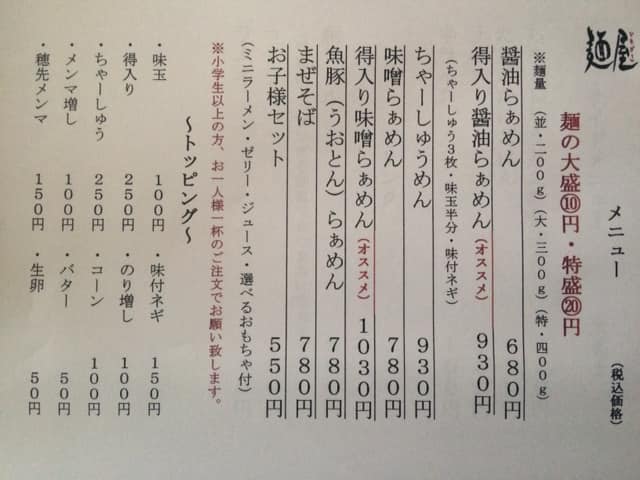 麺屋
メニュー (税込価格)
麺の大盛⑩円・特盛⑳円
※麺量 (並・二００ｇ)(大・三００ｇ)(特・四００ｇ)
醤油らぁめん ６８０円
得入り醤油らぁめん(オススメ) ９３０円
(ちゃーしゅう３枚・味玉半分・味付ネギ)
ちゃーしゅうめん ９３０円
味噌らぁめん ７８０円
得入り味噌らぁめん(オススメ) １０３０円
魚豚(うおとん)らぁめん ７８０円
まぜそば ７８０円
お子様セット ５５０円
(ミニラーメン・ゼリー・ジュース・選べるおもちゃ付)
※小学生以上の方、お一人様一杯のご注文でお願い致します。
～トッピング～
・味玉 １００円 ・味付ネギ １５０円
・得入り ２５０円 ・のり増し １００円
・ちゃーしゅう ２５０円 ・コーン １００円
・メンマ増し １００円 ・バター ５０円
・穂先メンマ １５０円 ・生卵 ５０円